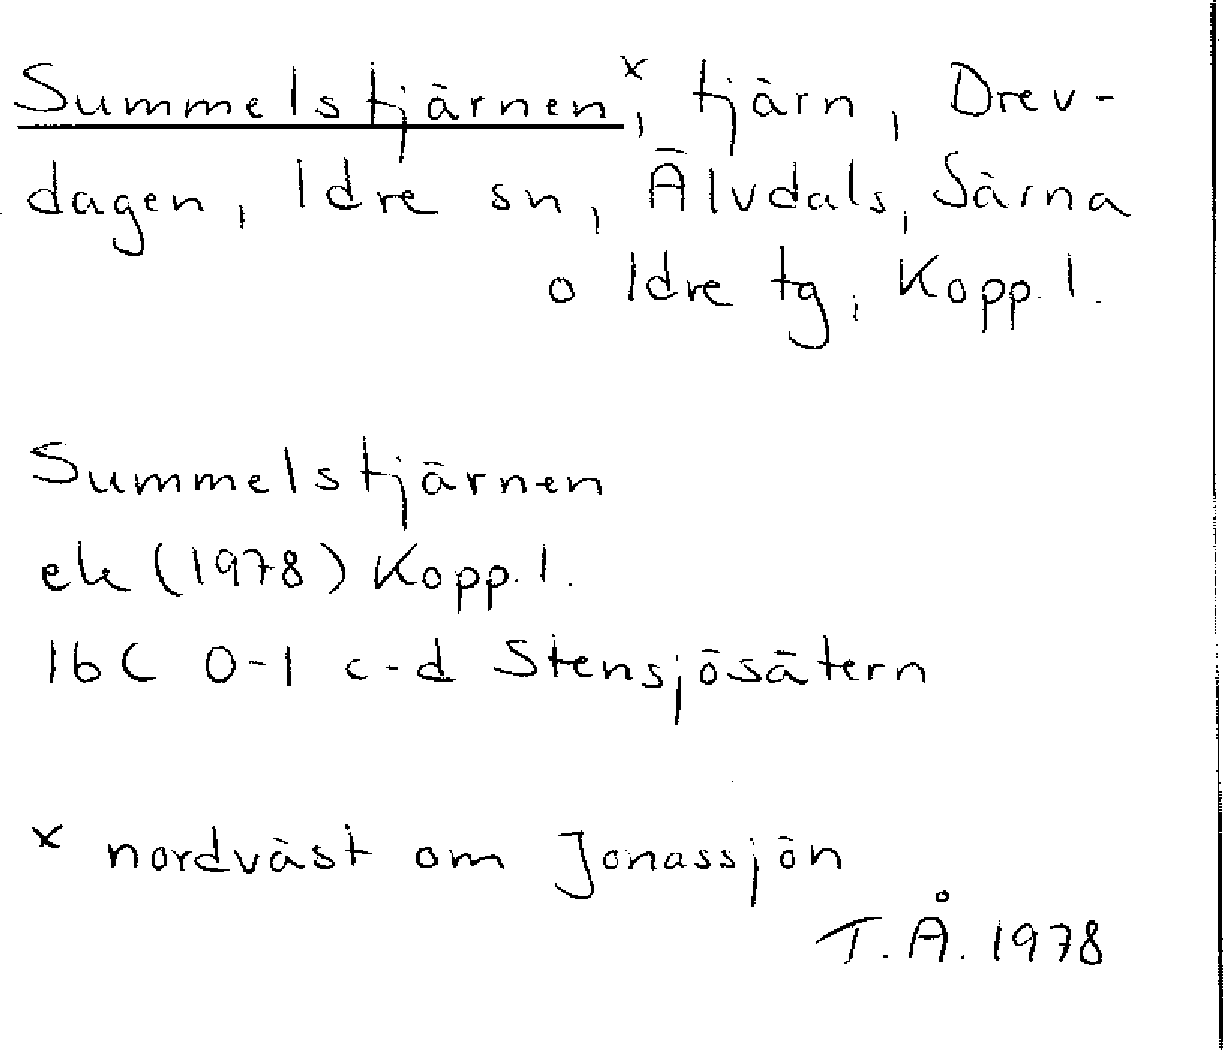 Summelstjärnen ˣ, tjärn, Drev-
dagen, Idre sn, Älvdals, Särna
o Idre tg, Kopp. l.
Summelstjärnen
ek (1978) Kopp. l.
16C 0-1 c-d Stensjösätern
x nordväst om Jonassjön
T.Å. 1978